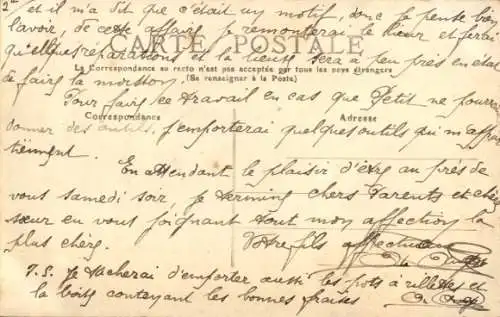 2e et il m'a dit que c'était un motif, donc je pense bien
l'avoir, de cette affaire je remonterai le lieur et ferai
CARTE POSTALE
quelques réparations et la lieuse sera à peu près en état
La Correspondance au recto n'est pas acceptée par tous les pays étrangers
(Se renseigner à la Poste)
de faire la moisson.
Pour faire ce travail en cas que Petit ne pourrait
Correspondance
Adresse
donner des outils, j'emporterai quelques outils qui m'appar
tiennent.
En attendant le plaisir d'être auprès de
vous samedi soir, je termine chers Parents et chère
sœur en vous joignant tout mon affection la
plus chère.
Votre fils affectueux
P.S. Je tacherai d'emporter aussi les pots à rillettes et
la boîte contenant les bonnes fraises